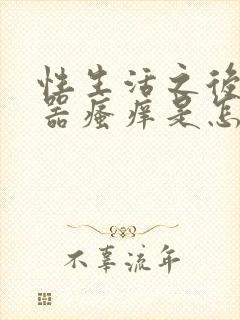 性生活之後
器瘙痒是怎
不辜流年